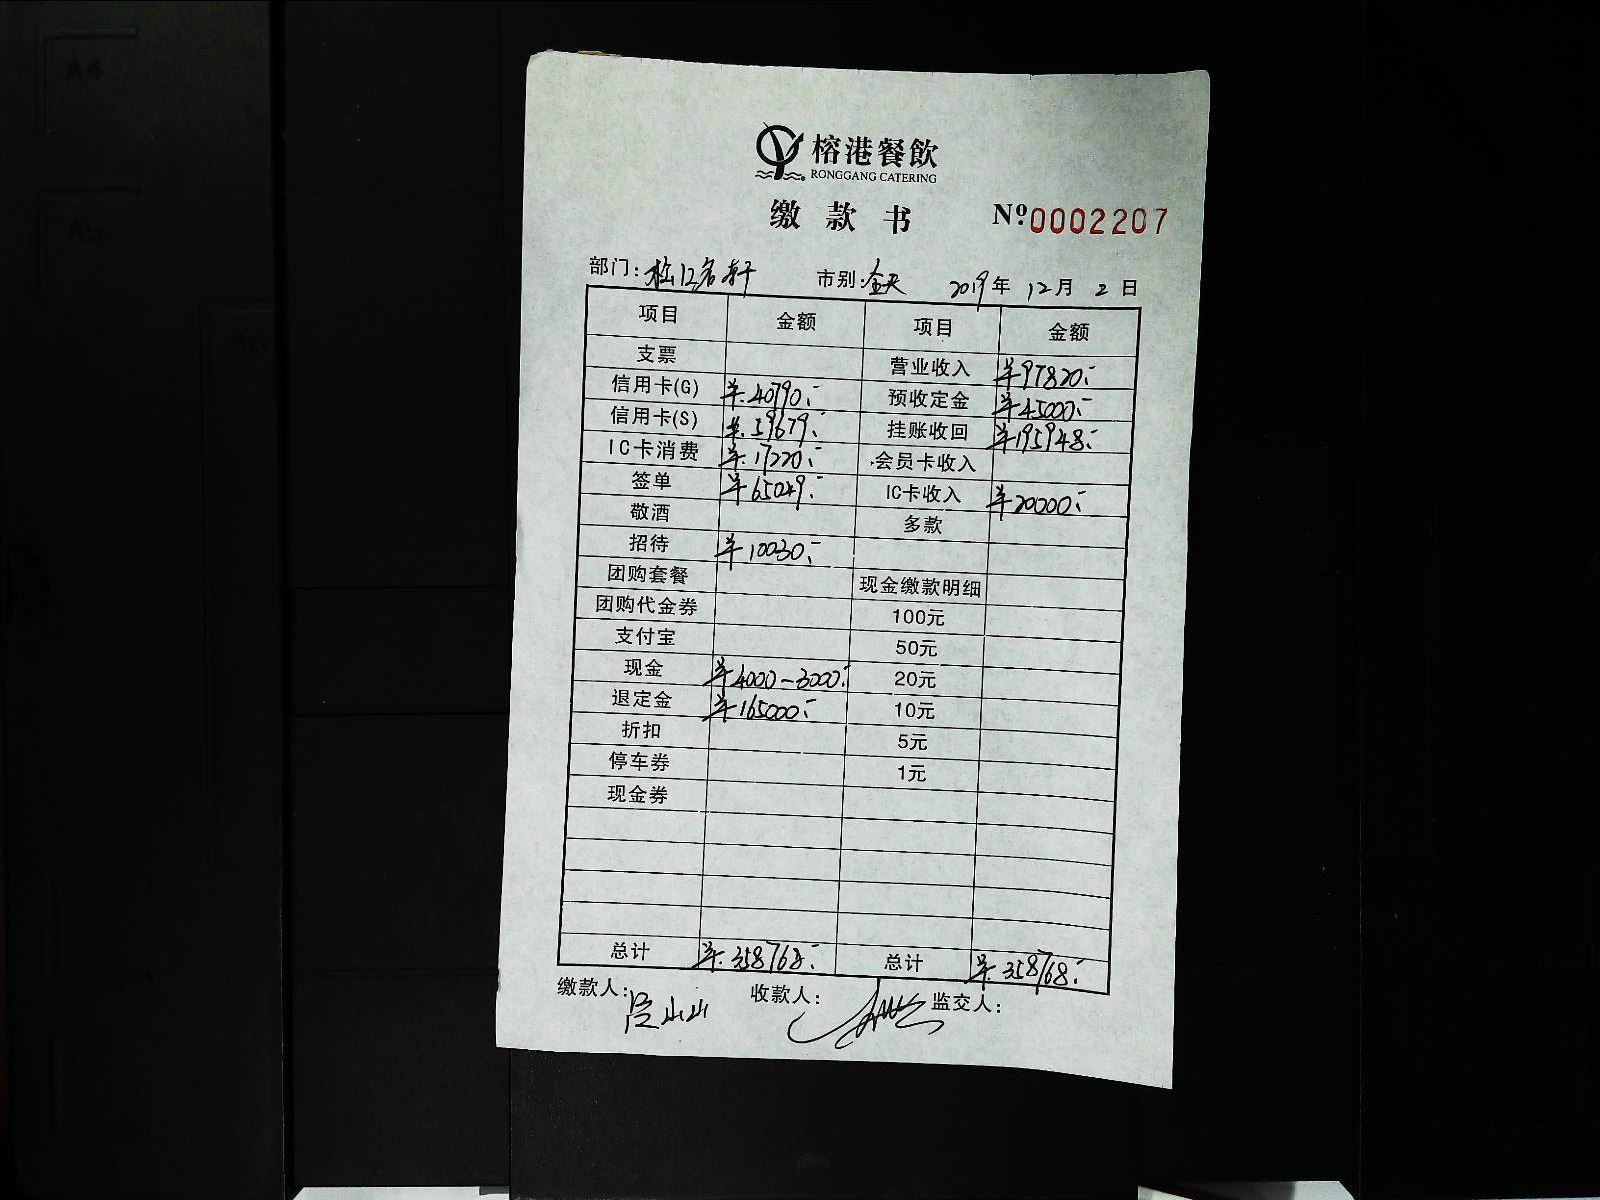 A4
A5
榕港餐飲
RONGGANG CATERING
缴款书 Nº0002207
部门:松江名轩 市别:全天 2019年12月2日
项目 金额 项目 金额
支票 营业收入 ¥97820.-
信用卡(G) ¥.40790.- 预收定金 ¥45000.-
信用卡(S) ¥.59679.- 挂账收回 ¥195948.-
IC卡消费 ¥.17220.- 会员卡收入
签单 ¥65049.- IC卡收入 ¥20000.-
敬酒 多款
招待 ¥10030.-
团购套餐 现金缴款明细
团购代金券 100元
支付宝 50元
现金 ¥4000-3000.- 20元
退定金 ¥165000.- 10元
折扣 5元
停车券 1元
现金券
总计 ¥.358768.- 总计 ¥.358768.-
缴款人: 收款人: 监交人: